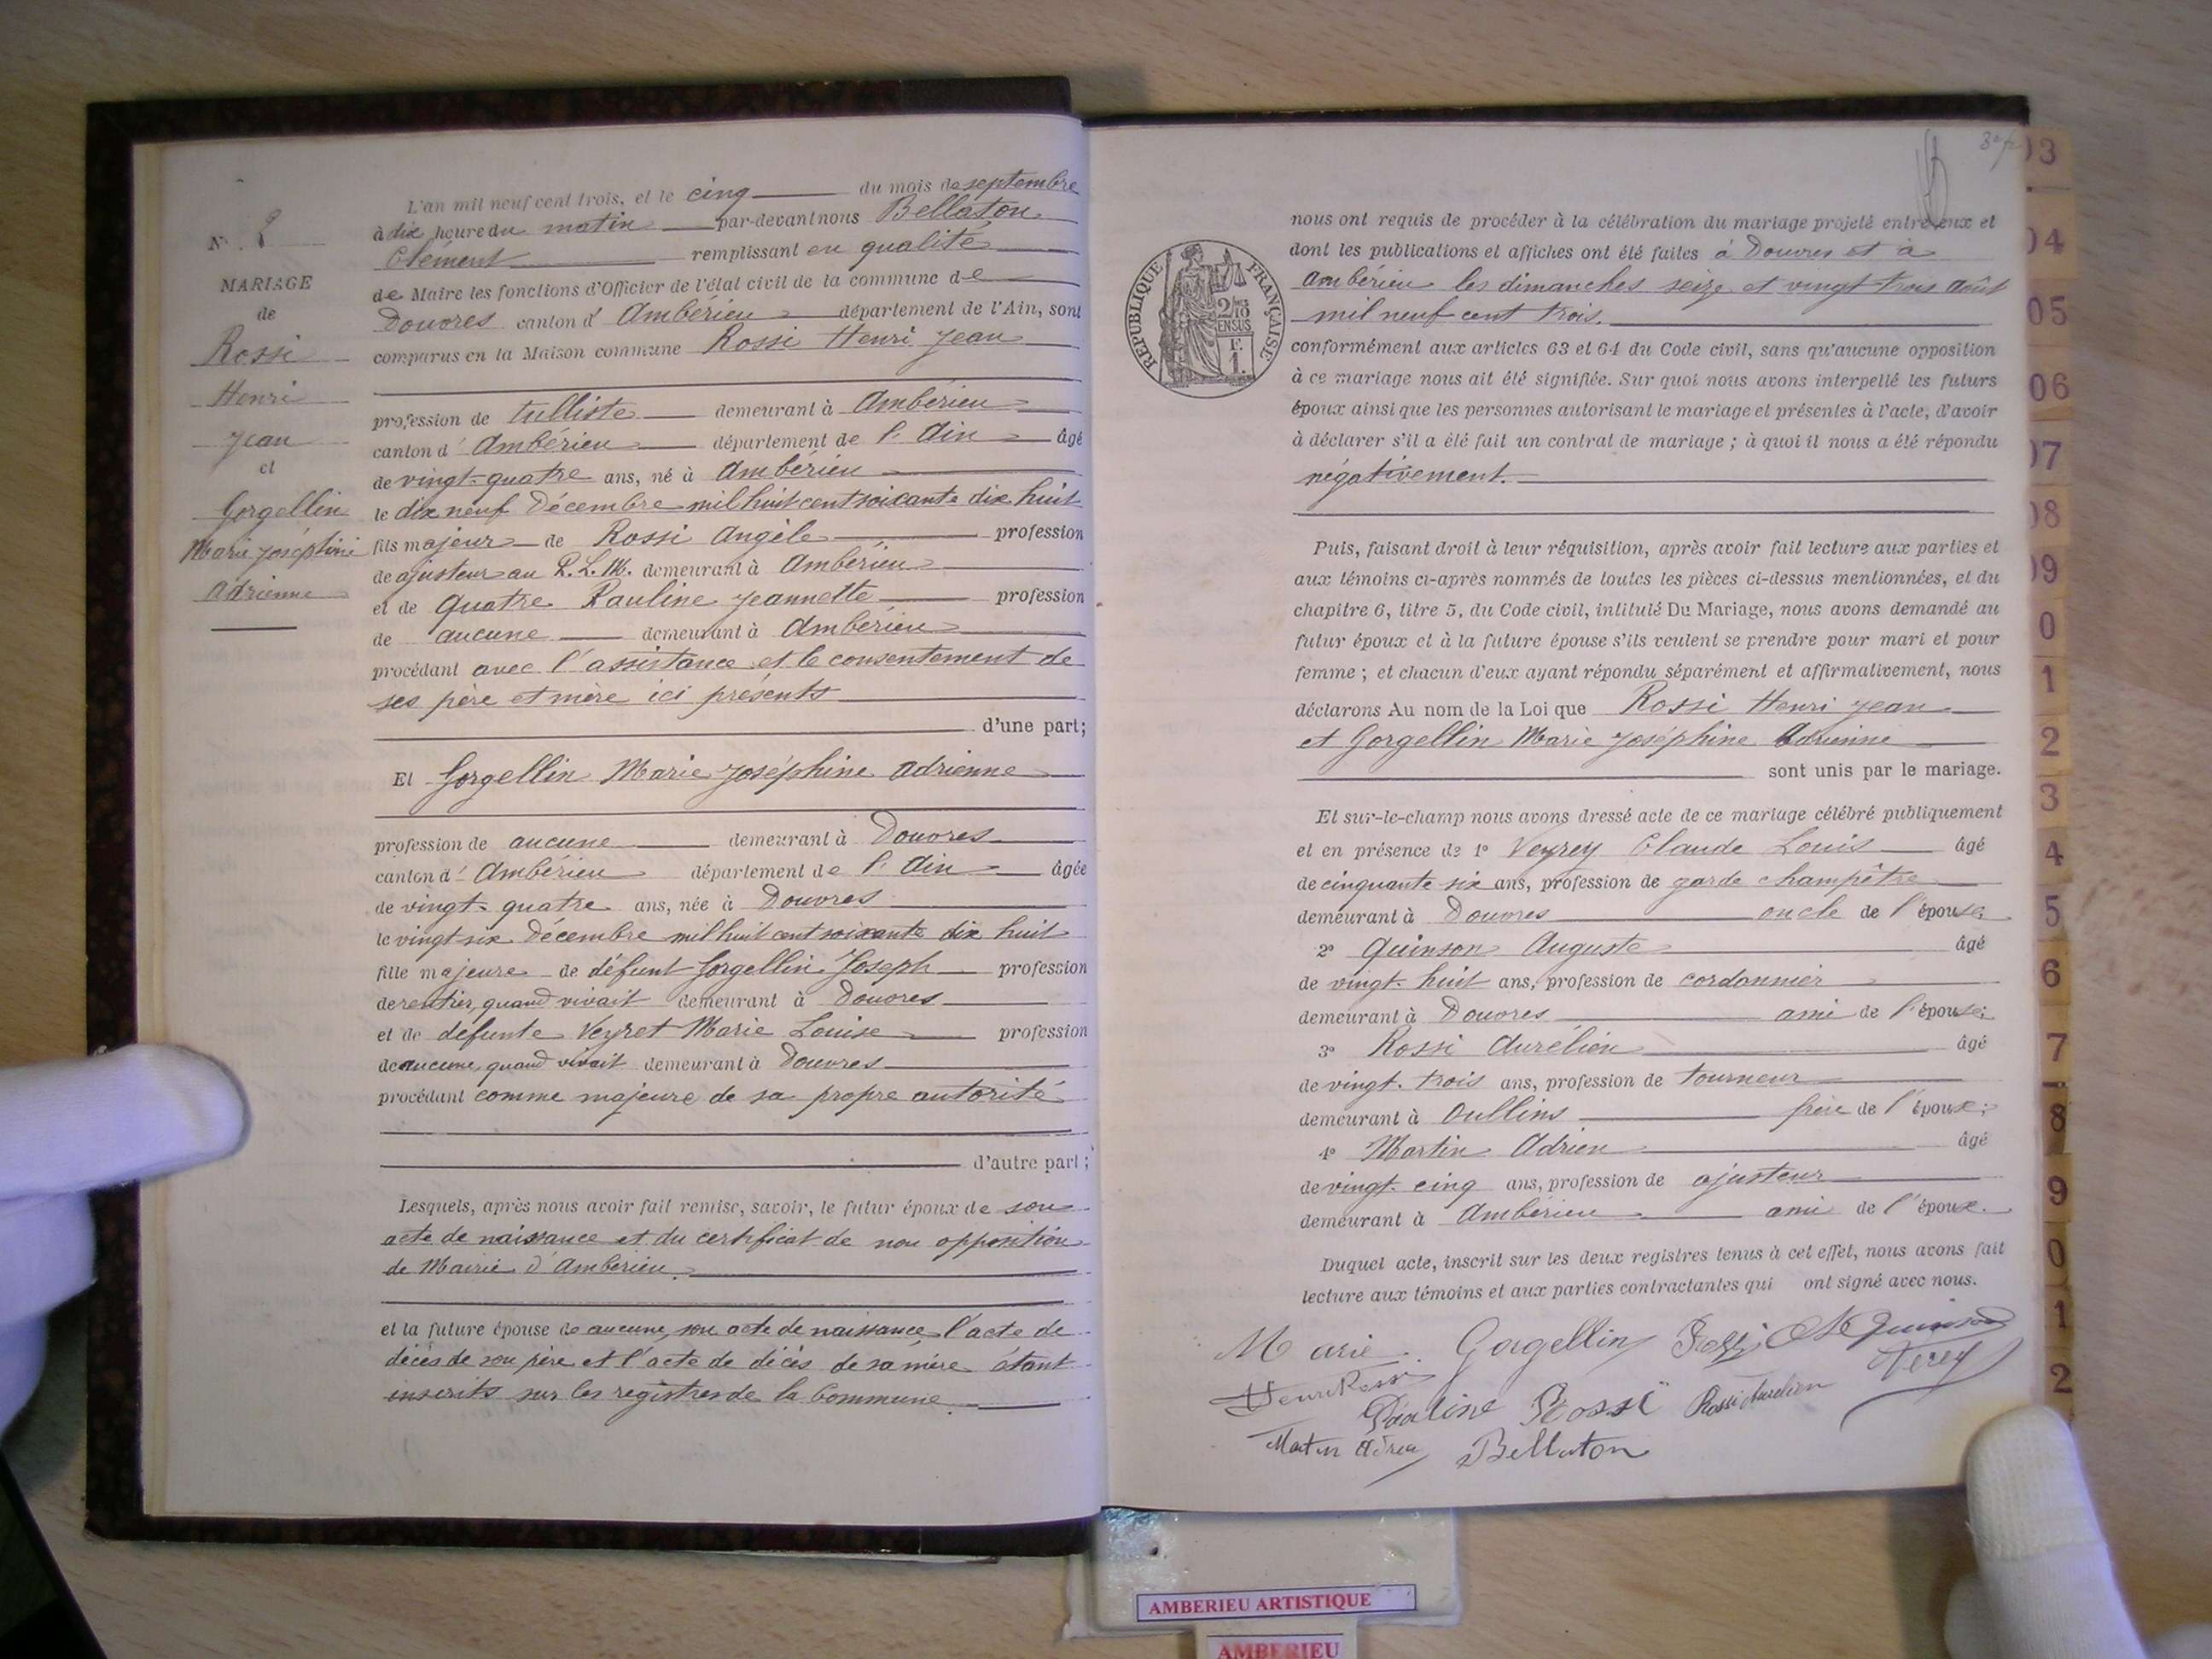 L'an mil neuf cent trois, et le cinq du mois de septembre
à dix heure du matin par-devant nous Bellaton
Clément remplissant en qualité
de Maire les fonctions d'Officier de l'état civil de la commune de
Douvres canton d'Ambérieu département de l'Ain, sont
comparus en la Maison commune Rossi Henri Jean
profession de tulliste demeurant à Ambérieu
canton d'Ambérieu département de l'Ain âgé
de vingt-quatre ans, né à Ambérieu
le dix neuf Décembre mil huit cent soixante dix huit
fils majeur de Rossi Angèle profession
de ajusteur au P. L. M. demeurant à Ambérieu
et de Quatre Pauline Jeannette profession
de aucune demeurant à Ambérieu
procédant avec l'assistance et le consentement de
ses père et mère ici présents
d'une part;
Et Gorgellin Marie Joséphine Adrienne
profession de aucune demeurant à Douvres
canton d'Ambérieu département de l'Ain âgée
de vingt-quatre ans, née à Douvres
le vingt six Décembre mil huit cent soixante dix huit
fille majeure de défunt Gorgellin Joseph profession
de rentier, quand vivait demeurant à Douvres
et de défunte Veyret Marie Louise profession
de aucune, quand vivait demeurant à Douvres
procédant comme majeure de sa propre autorité
d'autre part;
Lesquels, après nous avoir fait remise, savoir, le futur époux de son
acte de naissance et du certificat de non opposition
de Mairie d'Ambérieu.
et la future épouse de aucune, son acte de naissance, l'acte de
décès de son père et l'acte de décès de sa mère étant
inscrits sur les registres de la Commune.
N°
MARIAGE
de
Rossi
Henri
Jean
et
Gorgellin
Marie Joséphine
Adrienne
RÉPUBLIQUE FRANÇAISE
2/10
EN SUS
F.
1.
nous ont requis de procéder à la célébration du mariage projeté entre eux et
dont les publications et affiches ont été faites à Douvres et à
Ambérieu les dimanches seize et vingt trois Août
mil neuf cent trois.
conformément aux articles 63 et 64 du Code civil, sans qu'aucune opposition
à ce mariage nous ait été signifiée. Sur quoi nous avons interpellé les futurs
époux ainsi que les personnes autorisant le mariage et présentes à l'acte, d'avoir
à déclarer s'il a été fait un contrat de mariage ; à quoi il nous a été répondu
négativement.
Puis, faisant droit à leur réquisition, après avoir fait lecture aux parties et
aux témoins ci-après nommés de toutes les pièces ci-dessus mentionnées, et du
chapitre 6, titre 5, du Code civil, intitulé Du Mariage, nous avons demandé au
futur époux et à la future épouse s'ils veulent se prendre pour mari et pour
femme ; et chacun d'eux ayant répondu séparément et affirmativement, nous
déclarons Au nom de la Loi que Rossi Henri Jean
et Gorgellin Marie Joséphine Adrienne
sont unis par le mariage.
Et sur-le-champ nous avons dressé acte de ce mariage célébré publiquement
et en présence de 1° Veyrey Claude Louis âgé
de cinquante six ans, profession de garde champêtre
demeurant à Douvres oncle de l'épouse;
2° Quinson Auguste âgé
de vingt-huit ans, profession de cordonnier
demeurant à Douvres ami de l'épouse;
3° Rossi Aurélien âgé
de vingt-trois ans, profession de tourneur
demeurant à Oullins frère de l'époux;
4° Martin Adrien âgé
de vingt-cinq ans, profession de ajusteur
demeurant à Ambérieu ami de l'époux.
Duquel acte, inscrit sur les deux registres tenus à cet effet, nous avons fait
lecture aux témoins et aux parties contractantes qui ont signé avec nous.
Marie Gorgellin Rossi Quinson
Henri Rossi Pauline Rossi Rossi Aurélien Verey
Martin Adrien Bellaton
03
04
05
06
07
08
09
0
1
2
3
4
5
6
7
8
9
0
1
2
AMBERIEU ARTISTIQUE
AMBERIEU